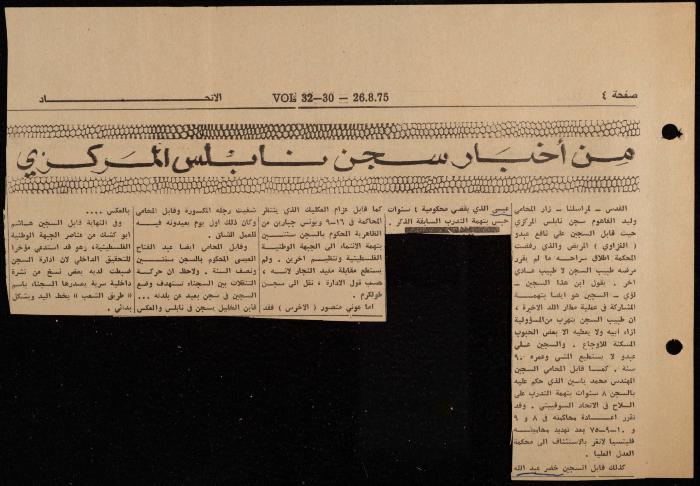 صفحة ٤
VOL 32-30 - 26.8.75
الاتحاد
من أخبار سجن نابلس المركزي
القدس - لمراسلنا - زار المحامي
وليد الفاهوم سجن نابلس المركزي
حيث قابل السجين علي نافع عبدو
( الغزاوي ) المريض والذي رفضت
المحكمة اطلاق سراحه ما لم يقرر
مرضه طبيب السجن لا طبيب عادي
اخر . يقول ابن هذا السجن -
لؤي - السجين هو ايضا بتهمة
المشاركة في عملية مطار اللد الاخيرة ،
ان طبيب السجن يتهرب من المسؤولية
ازاء ابيه ولا يعطيه الا بعض الحبوب
المسكنة للاوجاع . والسجين علي
عبدو لا يستطيع المشي وعمره ٩٠
سنة . كما قابل المحامي السجين
المهندس محمد ياسين الذي حكم عليه
بالسجن ٨ سنوات بتهمة التدرب على
السلاح في الاتحاد السوفييتي . وقد
تقرر اعادة محاكمته في ٨ و ٩
و ١٠-٩-٧٥ بعد تهديد محاميته
فليتسيا لانغر بالاستئناف الى محكمة
العدل العليا .
كذلك قابل السجين خضر عبد الله
عيسى الذي يقضي محكومية ٤ سنوات
حبس بتهمة التدرب السابقة الذكر .
كما قابل عزام العكليك الذي ينتظر
المحاكمة في ١٦-٩ ويونس جبارين من
الظاهرية المحكوم بالسجن سنتين
بتهمة الانتماء الى الجبهة الوطنية
الفلسطينية وتنظيم اخرين . ولم
يستطع مقابلة مفيد النجار لانه ،
حسب قول الادارة ، نقل الى سجن
طولكرم .
اما عوني منصور ( الاخرس ) فقد
شفيت رجله المكسورة وقابل المحامي
وكان ذلك اول يوم يعيدونه فيه
للعمل الشاق .
وقابل المحامي ايضا عبد الفتاح
العبسي المحكوم بالسجن سنتين
ونصف السنة . ولاحظ ان حركة
التنقلات بين السجناء تستهدف وضع
السجين في سجن بعيد عن بلدته ...
فابن الخليل يسجن في نابلس والعكس
بالعكس ....
وفي النهاية قابل السجين هاشم
ابو كشك من عناصر الجبهة الوطنية
الفلسطينية، وهو قد استدعي مؤخرا
للتحقيق الداخلي لان ادارة السجن
ضبطت لديه بعض نسخ من نشرة
داخلية سرية يصدرها السجناء باسم
« طريق الشعب » بخط اليد وبشكل
بدائي .